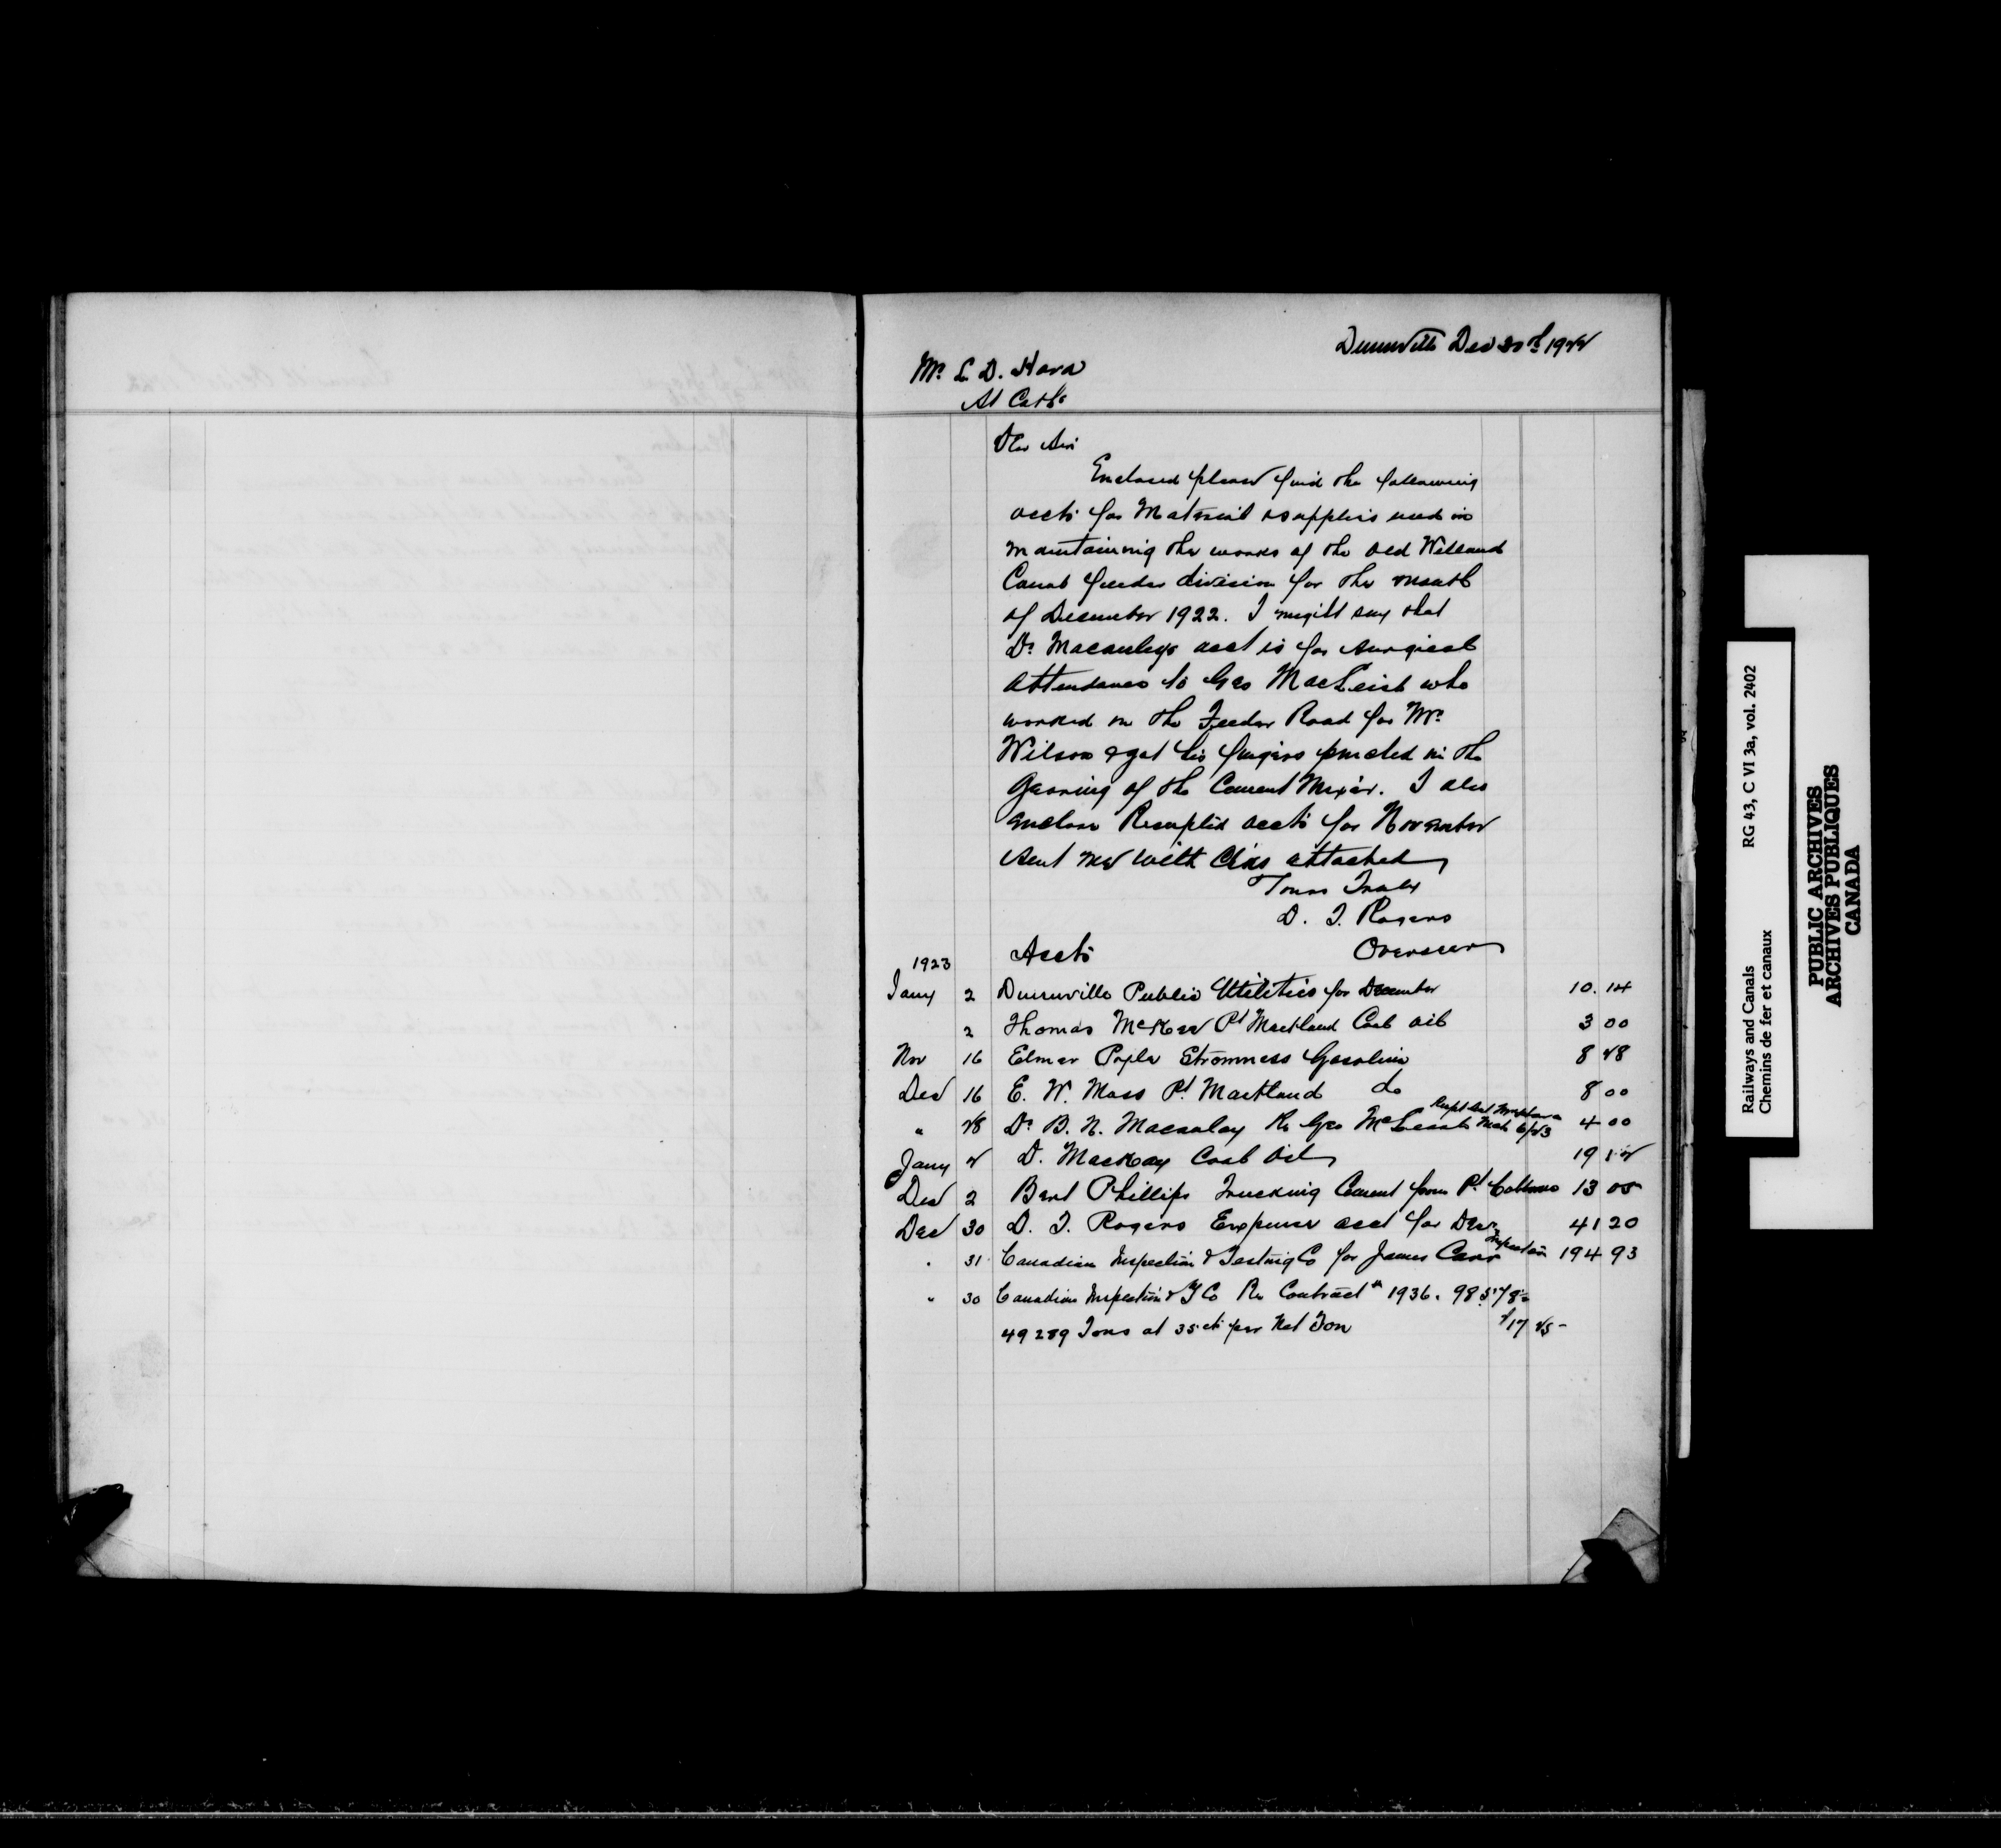 Dunnville Dec 30th 1922
Mr. L. D. Hara
St Cath's
Dear Sir
Enclosed please find the following
accts for Material & supplies used in
maintaining the works of the old Welland
Canal feeder division for the month
of December 1922. I might say that
Dr Macauleys acct is for surgical
attendance to Geo MacLeish who
worked on the Feeder Road for Mr.
Wilson & got his fingers pinched in the
gearing of the Cement Mixer. I also
enclose Receipted accts for November
sent me with Cks attached
Yours Truly
D. T. Rogers
Overseer
1923 Accts
Jany 2 Dunnville Public Utilities for December 10.14
2 Thomas McKee Pt Maitland Coal oil 3 00
Nov 16 Elmer Stromness Gasoline 8 28
Dec 16 E. W. Moss Pt. Maitland do 8 00
" 28 Dr B. N. Macaulay Re Geo 4 00
Jany 2 D. MacKay Coal Oil 19 12
Dec 2 Bert Phillips Trucking Cement from Pt. Colborne 13 05
Dec 30 D. T. Rogers Expense acct for Dec 41 20
" 31 Canadian Inspection & Testing Co for James Carr Inspector 194 93
" 30 Canadian Inspection & T Co Re Contract # 1936. 98
49289 Tons at 35 cts per Net Ton $17 25
Railways and Canals RG 43, C VI 3a, vol. 2402
Chemins de fer et canaux
PUBLIC ARCHIVES
ARCHIVES PUBLIQUES
CANADA